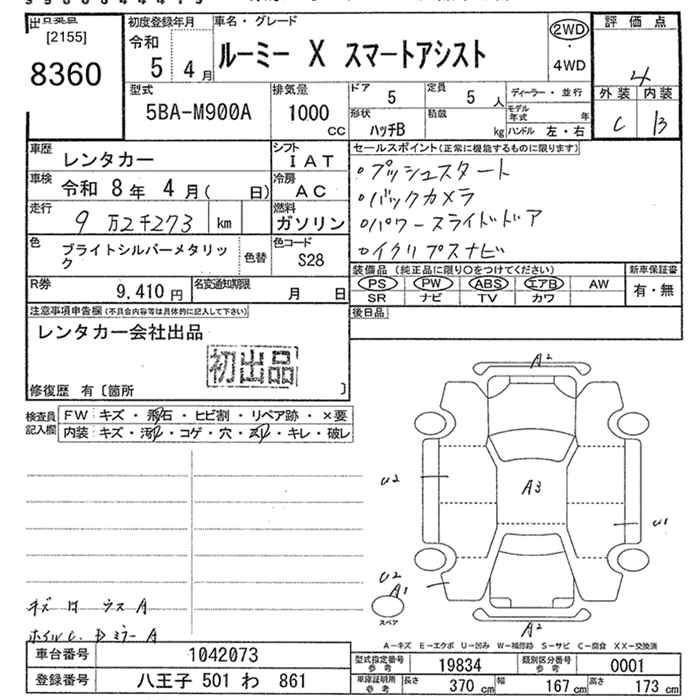 [2155]
8360
初度登録年月
令和
5 4月
車名・グレード
ルーミー X スマートアシスト
2WD
・
4WD
評価点
4
外装 内装
C B
型式
5BA-M900A
排気量
1000
CC
ドア
5
定員
5 人
形状
ハッチB
積載
kg
ディーラー・並行
モデル年式 年
ハンドル 左・右
車歴
レンタカー
シフト
IAT
車検
令和 8年 4月( 日)
冷房
AC
走行
9万2千273 km
燃料
ガソリン
色
ブライトシルバーメタリッ
ク
色替
色コード
S28
R券
9,410円
名変通知期限
月 日
セールスポイント(正常に機能するものに限ります)
・プッシュスタート
・バックカメラ
・パワースライドドア
・イクリプスナビ
装備品 (純正品に限り○をつけてください)
PS PW ABS エアB AW
SR ナビ TV カワ
新車保証書
有・無
後日品
注意事項申告欄(不具合内容等は具体的に記入して下さい)
レンタカー会社出品
初出品
修復歴 有〔箇所 〕
検査員
記入欄
FW キズ・飛石・ヒビ割・リペア跡・×要
内装 キズ・汚れ・コゲ・穴・スレ・キレ・破レ
A2
U2
A3
U1
U2
A1
スペア
A2
キズ ウスA
ホイルC. ミラーA
A－キズ E－エクボ U－凹み W－補修跡 S－サビ C－腐食 XX－交換済
車台番号
1042073
登録番号
八王子 501 わ 861
型式指定番号
参考
19834
類別区分番号
参考
0001
車庫証明所
参考
長さ 370 cm
幅 167 cm
高さ 173 cm